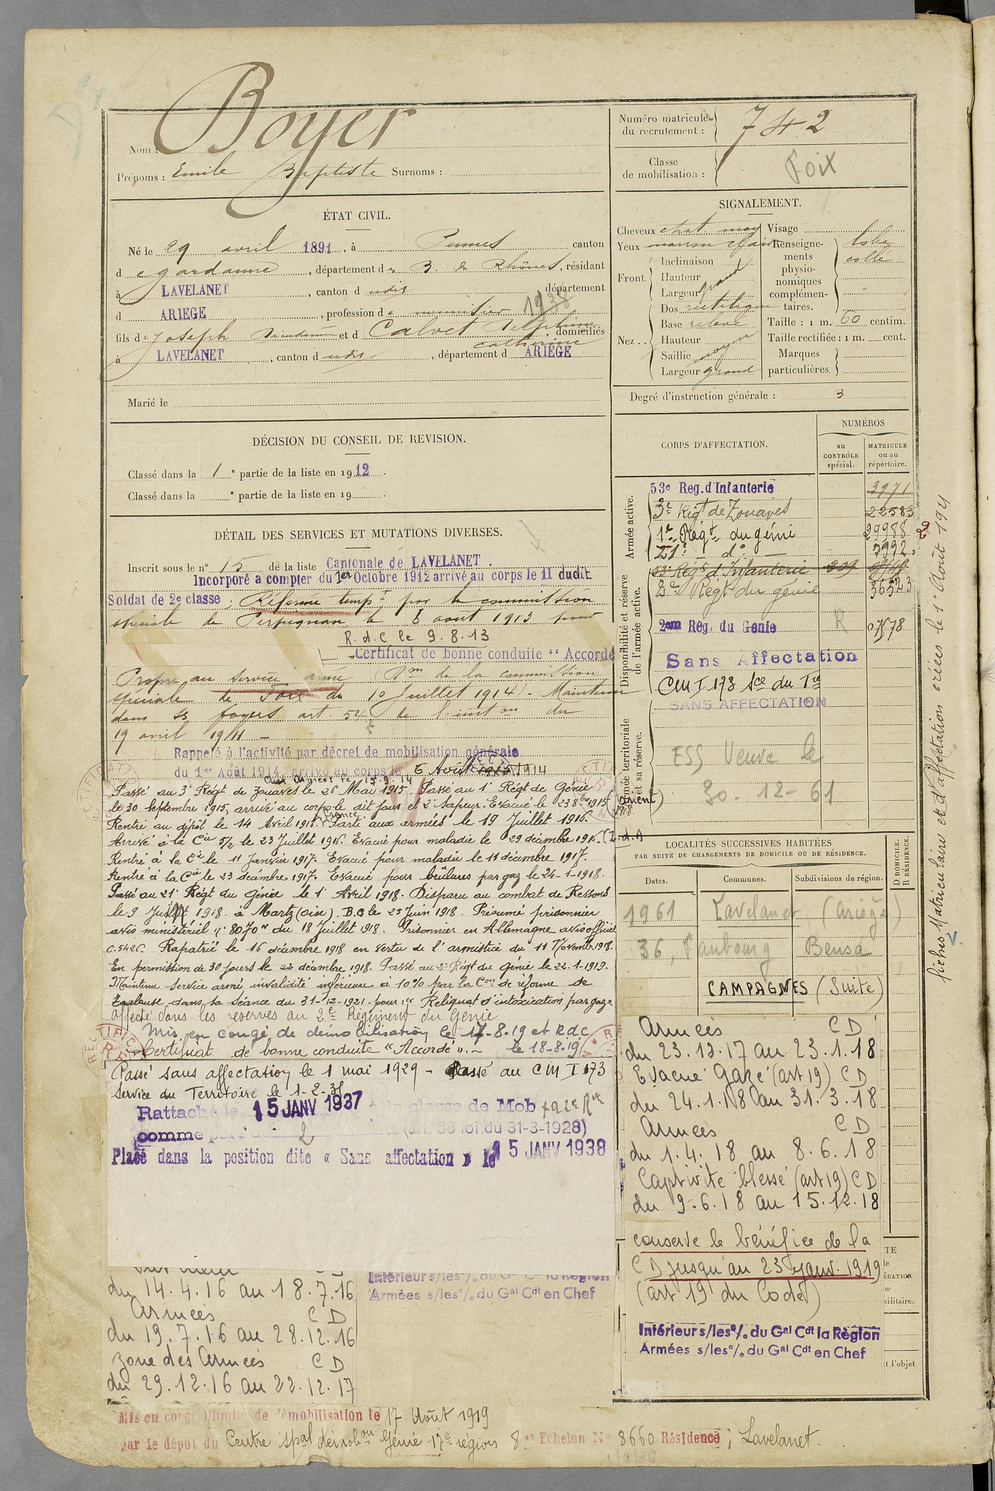 Nom : Boyer
Prénoms : Emile Baptiste Surnoms :
Numéro matricule du recrutement : 742
Classe de mobilisation : Foix
ÉTAT CIVIL.
Né le 29 avril 1891, à canton
d e gardanne, département de B. du Rhône, résidant
à LAVELANET, canton d udit, département
d ARIEGE, profession de 1938
fils de Joseph et de Calvet Delphine, domiciliés
Catherine
à LAVELANET, canton d udit, département d ARIEGE
Marié le
SIGNALEMENT.
Cheveux chat. moy
Yeux marron clair
Front.
Inclinaison
Hauteur
Largeur grand
Nez...
Dos rectiligne
Base relevé
Hauteur
Saillie moyen
Largeur grand
Visage
Renseignements physionomiques complémentaires.
Taille : 1 m. 60 centim.
Taille rectifiée : 1 m. cent.
Marques particulières.
Degré d'instruction générale : 3
DÉCISION DU CONSEIL DE REVISION.
Classé dans la 1e partie de la liste en 1912.
Classé dans la e partie de la liste en 19
DÉTAIL DES SERVICES ET MUTATIONS DIVERSES.
Inscrit sous le n° 15 de la liste Cantonale de LAVELANET.
Incorporé a compter du 1er Octobre 1912 arrivé au corps le 11 dudit
Soldat de 2e classe ; Réformé tempre par la commission
spéciale de Perpignan le 6 aout 1913 pour
R. d. C le 9.8.13
Certificat de bonne conduite "Accordé
Propre au service armé, Don de la commission
spéciale de Foix du 10 Juillet 1914 - Maintenu
dans ses foyers art. 54 de l'inston du
19 avril 1911 -
Rappelé à l'activité par décret de mobilisation générale
du 1er Août 1914, arrivé au corps le 6 Août 1914
Aux Armées le 15.9.14
Passé au 3e Régt de Zouaves le 26 Mai 1915. Passé au 1er Régt de Génie
le 30 Septembre 1915, arrivé au corps le dit jour et 2e Sapeur. Evacué le
Rentré au dépôt le 14 Avril 1916. Parti aux armées le 19 Juillet 1916.
Arrivé à la Cie 5/2 le 23 Juillet 1916. Evacué pour maladie le 29 décembre 1916. (Z.d.A
Rentré à la Cie le 11 Janvier 1917. Evacué pour maladie le 11 décembre 1917.
Rentré à la Cie le 23 décembre 1917. Evacué pour brûlures par gaz le 24-1-1918.
Passé au 21e Régt du Génie le 1er Avril 1918. Disparu au combat de Ressons
le 9 Juin 1918 à Martz (oise). B.O le 25 Juin 1918. Présumé prisonnier
avis ministériel n° 8070 du 18 Juillet 1918. Prisonnier en Allemagne avis officiel
C. 5426. Rapatrié le 16 décembre 1918 en vertu de l'armistice du 11 Novembre 1918.
En permission de 30 jours le 22 décembre 1918. Passé au 2e Régt du génie le 22-1-1919.
Maintenu service armé invalidité inférieure à 10% par la Con de réforme de
Toulouse dans sa séance du 31-12-1921. pour "Reliquat d'intoxication par gaz"
affecté dans les reserves au 2e Régiment du Génie
Mis en congé de démobilisation le 17-8-19 et R.d.C
Certificat de bonne conduite "Accordé". le 18-8-19
Passé sans affectation le 1 mai 1929 - Passé au CM I 173
Service du Territoire le 1-2-3
Rattaché 15 JANV 1937 classe de Mob
comme père de 2 (art. 58 loi du 31-3-1928)
Placé dans la position dite « Sans affectation » le 15 JANV 1938
du 14.4.16 au 18.7.16
Armées CD
du 19.7.16 au 28.12.16
Zone des Armées CD
du 29.12.16 au 22.12.17
Intérieur s/les % du Gal Cdt la Région
Armées s/les % du Gal Cdt en Chef
Mis en congé illimité de démobilisation le 17 Août 1919
par le dépôt du Centre spal démobon Génie 17e région 8e Echelon N° 8660 Résidence ; Lavelanet.
CORPS D'AFFECTATION.
NUMÉROS
au CONTRÔLE spécial.
MATRICULE ou au répertoire.
Armée active.
53e Reg. d'Infanterie 3971
3e Régt de Zouaves 22583
1er Régt du génie 29988
21e do 5992
Disponibilité et réserve de l'armée active.
53e Regt d'Infanterie
2e Régt du génie 36523
2em Reg. du Genie R 07578
Sans Affectation
Armée territoriale et sa réserve.
CM I 173 Sce du Tre
SANS AFFECTATION
ESS Veuve le
30-12-61
LOCALITÉS SUCCESSIVES HABITÉES
PAR SUITE DE CHANGEMENTS DE DOMICILE OU DE RÉSIDENCE.
Dates. Communes. Subdivisions de région. D DOMICILE. R RÉSIDENCE.
1961 Lavelanet (Ariège)
36, Faubourg Bensa
CAMPAGNES (Suite)
Armées CD
du 23.12.17 au 23.1.18
Evacué Gazé (art 19) CD
du 24.1.18 au 31.3.18
Armées CD
du 1.4.18 au 8.6.18
Captivité blessé (art 19) CD
du 9.6.18 au 15.12.18
conserve le bénéfice de la
CD jusqu'au 23 Janv. 1919
(art 19 du Code)
Intérieur s/les % du Gal Cdt la Région
Armées s/les % du Gal Cdt en Chef
t l'objet
fiches Matriculaire et d'affectation créées le 1er Août 194